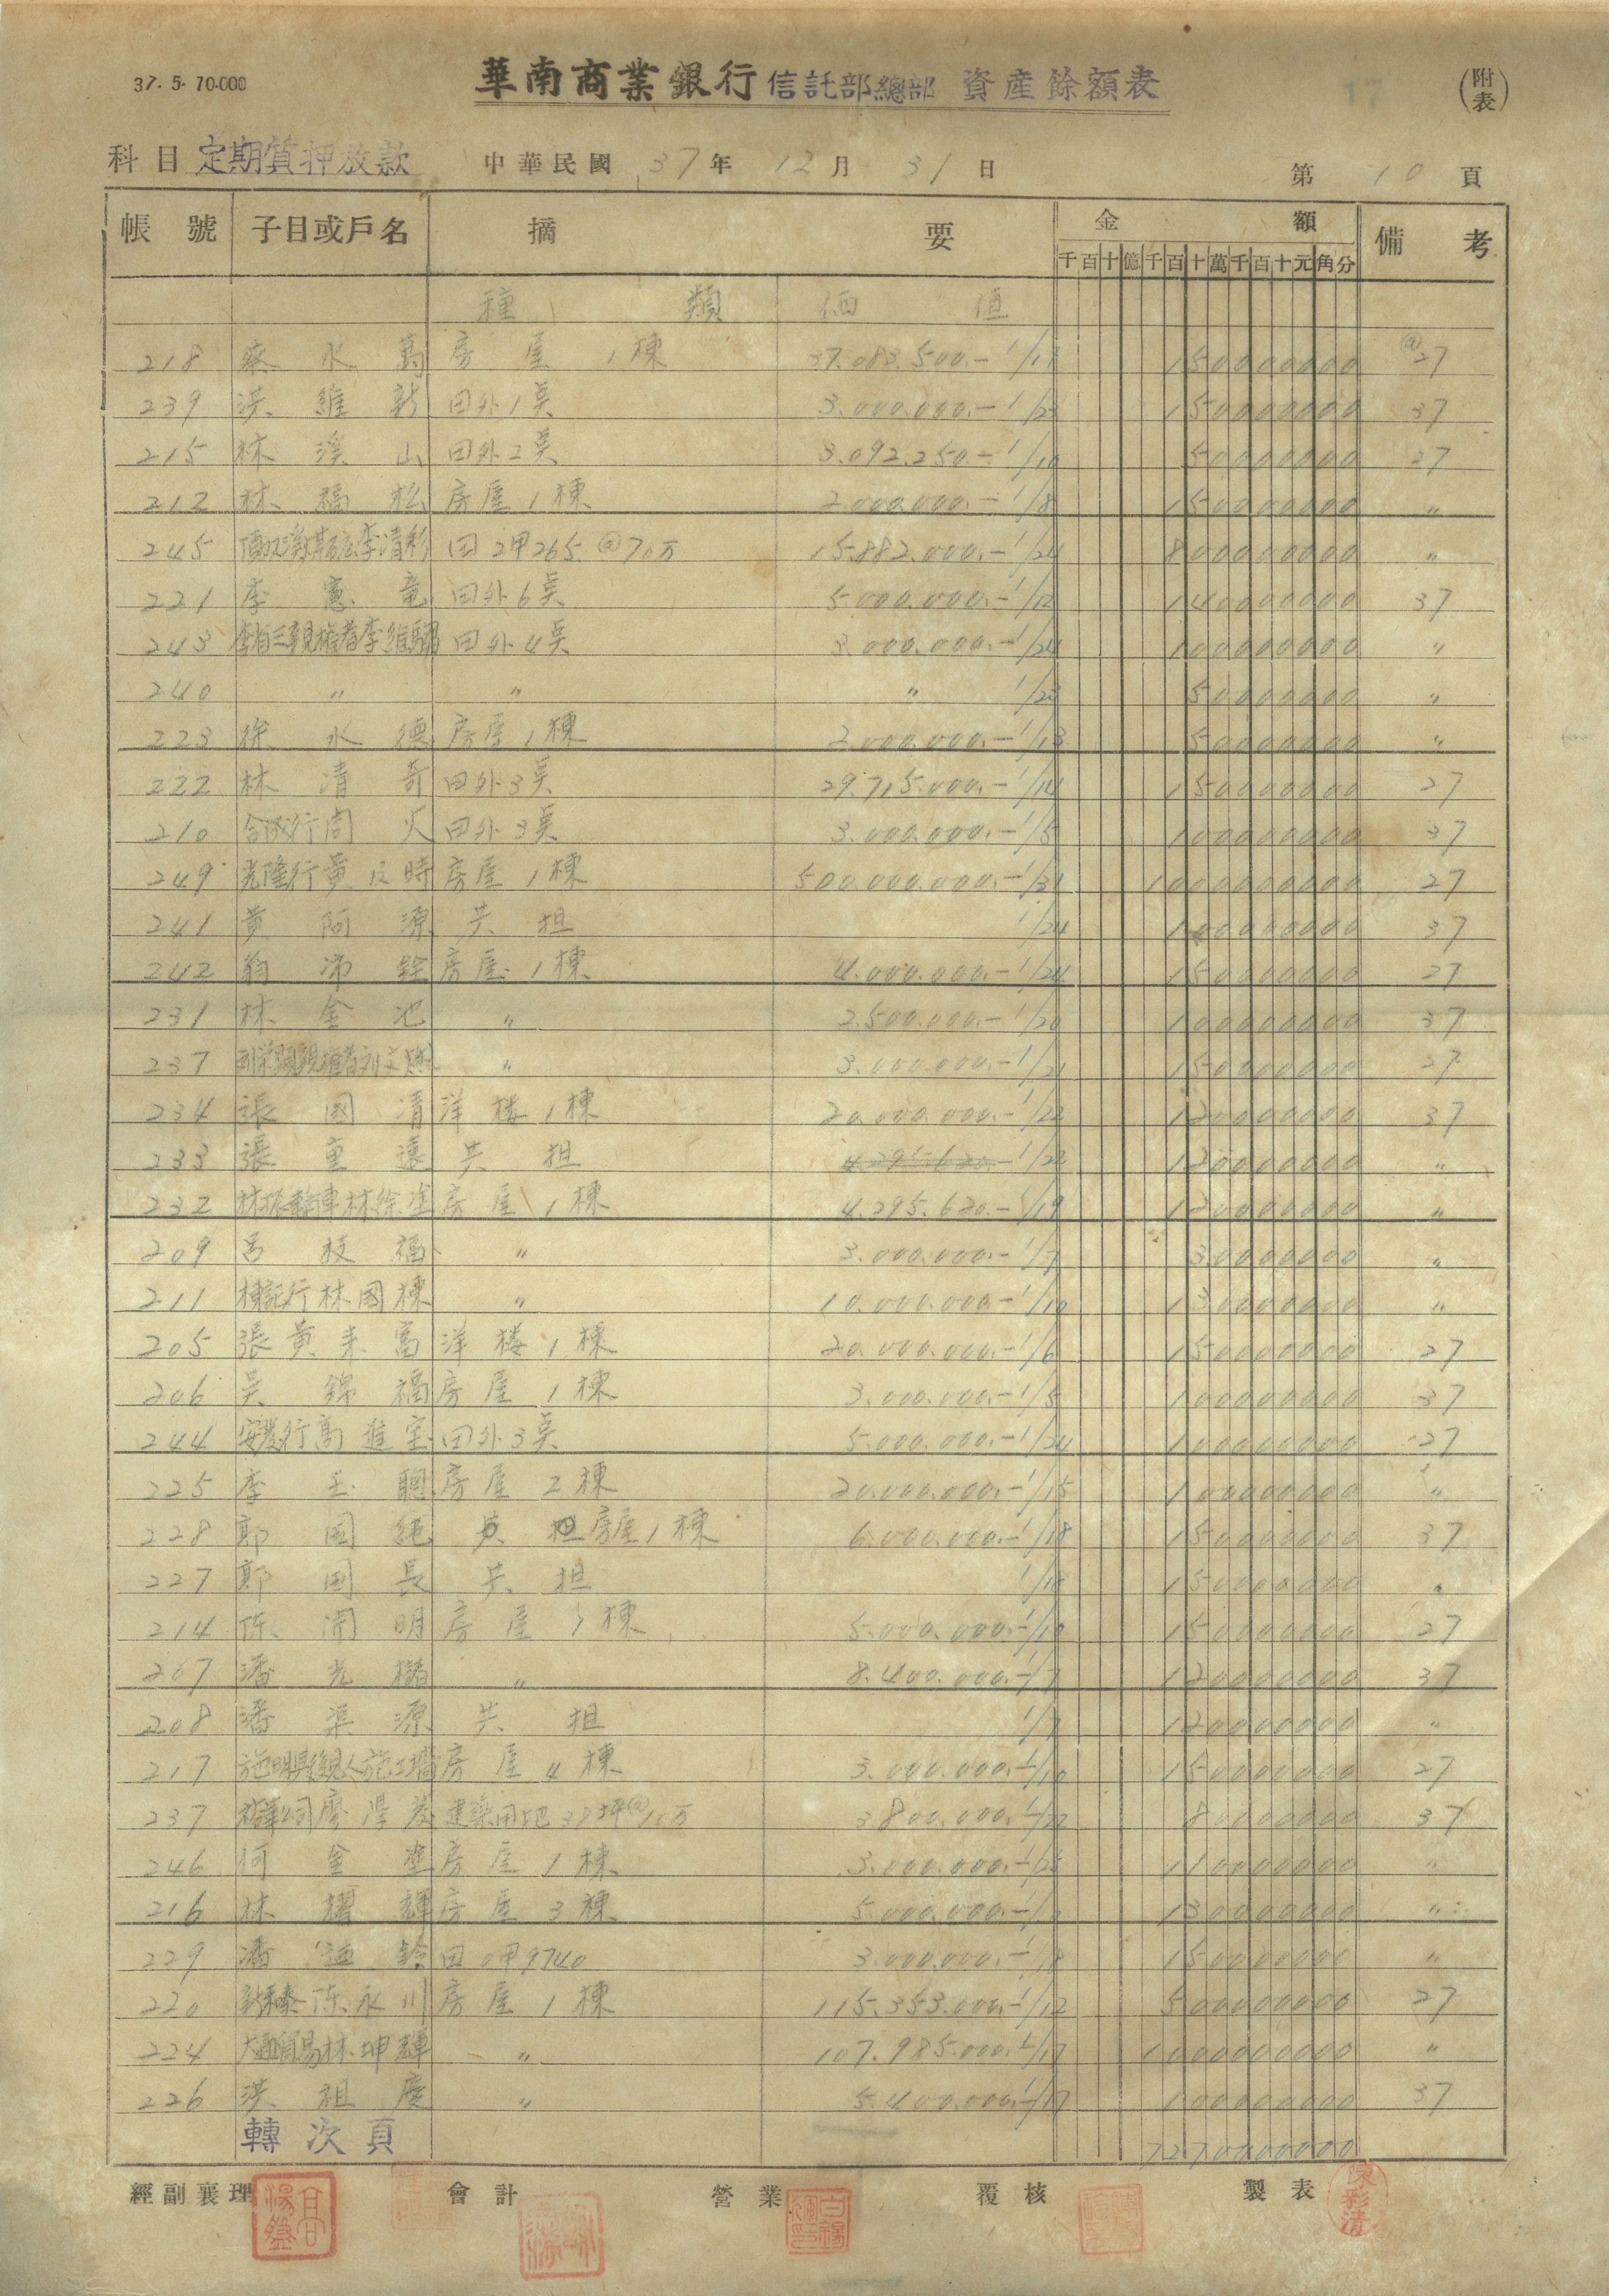 37. 5. 10.000
華南商業銀行 信託部總部 資產餘額表
(附表)
17
科目 定期質押放款 中華民國 37 年 12 月 31 日 第 10 頁
帳號 子目或戶名 摘要 金額 備考
千百十億千百十萬千百十元角分
種類 価值
218 蔡永萬 房屋1棟 37.083.500.- 1/11 150000000 @27
239 洪維新 田外1吴 3.000.000.- 1/23 150000000 37
215 林溪山 田外2吴 3.092.250.- 1/10 50000000 27
212 林福松 房屋1棟 2.000.000.- 1/8 150000000 〃
245 李清彩 田2甲265 @70万 15.882.000.- 1/24 800000000 〃
221 李憲竜 田外6吴 5.000.000.- 1/12 140000000 37
243 田外4吴 3.000.000.- 1/24 100000000 〃
240 〃 〃 〃 1/23 50000000 〃
223 徐永德 房屋1棟 2.000.000.- 1/13 50000000 〃
222 林清奇 田外3吴 29.715.000.- 1/14 150000000 27
210 合成行周火 田外3吴 3.000.000.- 1/5 100000000 37
249 光隆行黃及時 房屋1棟 500.000.000.- 1/31 1000000000 27
241 黃阿源 共担 1/24 100000000 37
242 翁沛銓 房屋1棟 4.000.000.- 1/24 150000000 27
231 林金池 〃 2.500.000.- 1/20 100000000 37
237 〃 3.000.000.- 1/21 150000000 27
234 張國清 洋楼1棟 20.000.000.- 1/22 120000000 37
233 張重遠 共担 4.295.620.- 1/22 120000000 〃
232 林徐塗 房屋1棟 4.295.620.- 1/19 120000000 〃
209 呂枝福 〃 3.000.000.- 1/7 30000000 〃
211 棟記行林國棟 〃 10.000.000.- 1/10 130000000 〃
205 張黃来富 洋楼1棟 20.000.000.- 1/6 150000000 27
206 吴錦福 房屋1棟 3.000.000.- 1/5 100000000 37
244 安發行高進宝 田外3吴 5.000.000.- 1/24 100000000 27
225 李玉聰 房屋2棟 20.000.000.- 1/15 100000000 〃
228 郭國純 共担房屋1棟 6.000.000.- 1/18 150000000 37
227 郭國長 共担 1/18 150000000 〃
214 陈開明 房屋1棟 5.000.000.- 1/10 150000000 27
207 潘光楷 〃 8.400.000.- 1/7 120000000 37
208 潘渠源 共担 1/7 120000000 〃
217 房屋4棟 3.000.000.- 1/10 150000000 27
237 建築用地38坪@10万 3.800.000.- 1/22 80000000 37
246 何金塗 房屋1棟 3.000.000.- 1/25 110000000 〃
216 林耀輝 房屋3棟 5.000.000.- 130000000 〃
229 潘迺鈴 田0甲9740 3.000.000.- 1/18 150000000 〃
220 陈永川 房屋1棟 115.353.000.- 1/12 500000000 27
224 大通貿易林坤輝 〃 107.985.000.- 1/17 1000000000 〃
226 洪祖度 〃 5.400.000.- 1/17 100000000 37
轉次頁 7270000000
經副襄理 會計 營業 覆核 製表
陳彩清